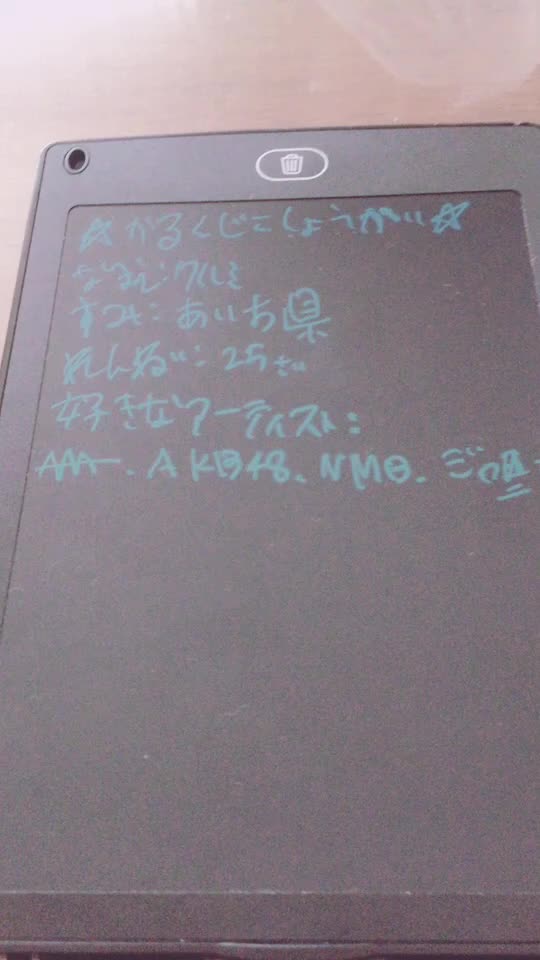 ☆かるくじこしょうかい☆
なまえ:クルミ
すみ: あいち県
ねんれい: 25さい
好きなアーティスト:
AAA、AKB48、NMB、